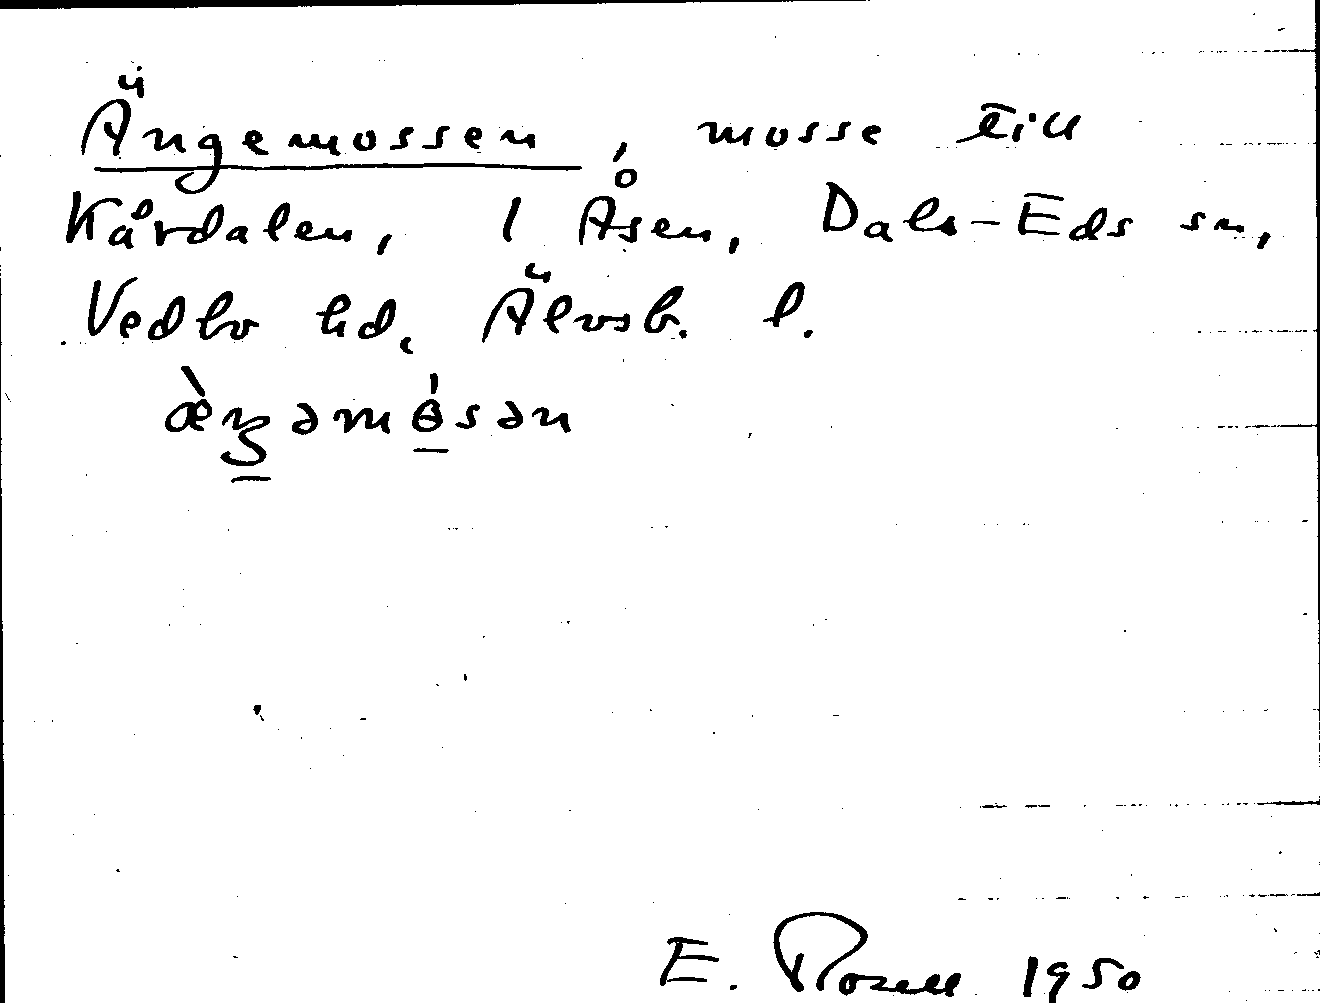 Ängemossen, mosse till
Kårdalen, 1 Åsen, Dals-Eds sn,
Vedbo hd, Älvsb. l.
E. Rosell 1950